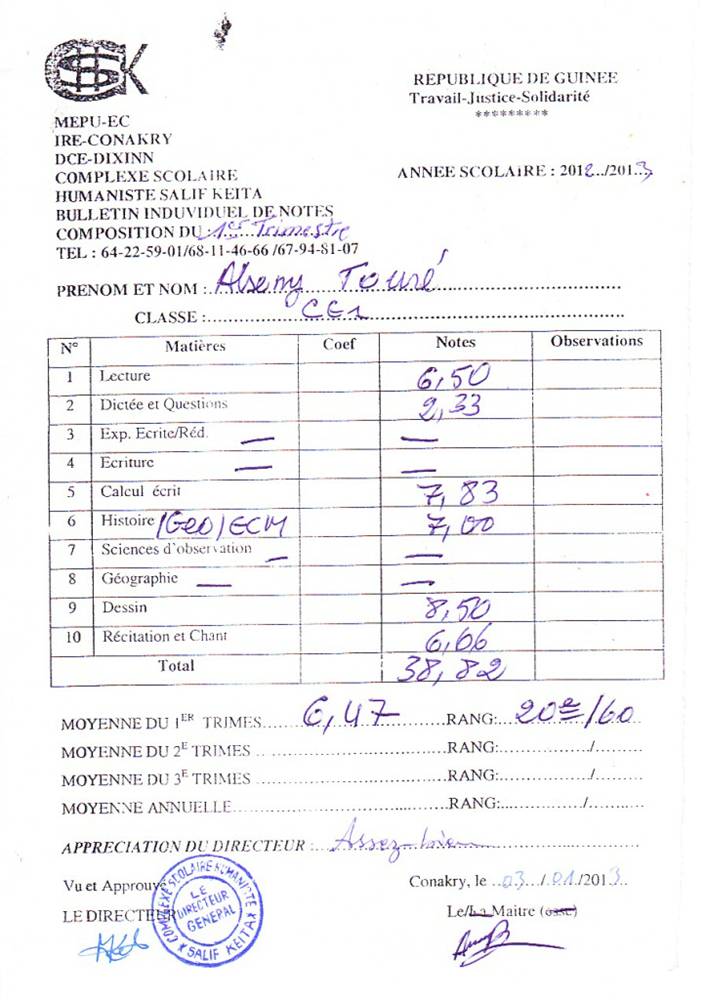 REPUBLIQUE DE GUINEE
Travail-Justice-Solidarité
*********
MEPU-EC
IRE-CONAKRY
DCE-DIXINN
COMPLEXE SCOLAIRE
HUMANISTE SALIF KEITA
BULLETIN INDUVIDUEL DE NOTES
COMPOSITION DU : 1er Trimestre
TEL : 64-22-59-01/68-11-46-66 /67-94-81-07
ANNEE SCOLAIRE : 2012../201..3
PRENOM ET NOM : Alseny Touré
CLASSE : CE1
N° Matières Coef Notes Observations
1 Lecture 6,50
2 Dictée et Questions 2,33
3 Exp. Ecrite/Réd. — —
4 Ecriture — —
5 Calcul écrit 7,83
6 Histoire /Geo/ECM 7,00
7 Sciences d'observation — —
8 Géographie — —
9 Dessin 8,50
10 Récitation et Chant 6,66
Total 38,82
MOYENNE DU 1ER TRIMES 6,47 RANG: 20e/60
MOYENNE DU 2E TRIMES RANG: /
MOYENNE DU 3E TRIMES RANG: /
MOYENNE ANNUELLE RANG: /
APPRECIATION DU DIRECTEUR : Assez-bien
Vu et Approuvé
Conakry, le 03 / 01 /2013
LE DIRECTEUR
Le/La Maitre (esse)
COMPLEXE SCOLAIRE HUMANISTE
LE DIRECTEUR GENERAL
SALIF KEITA